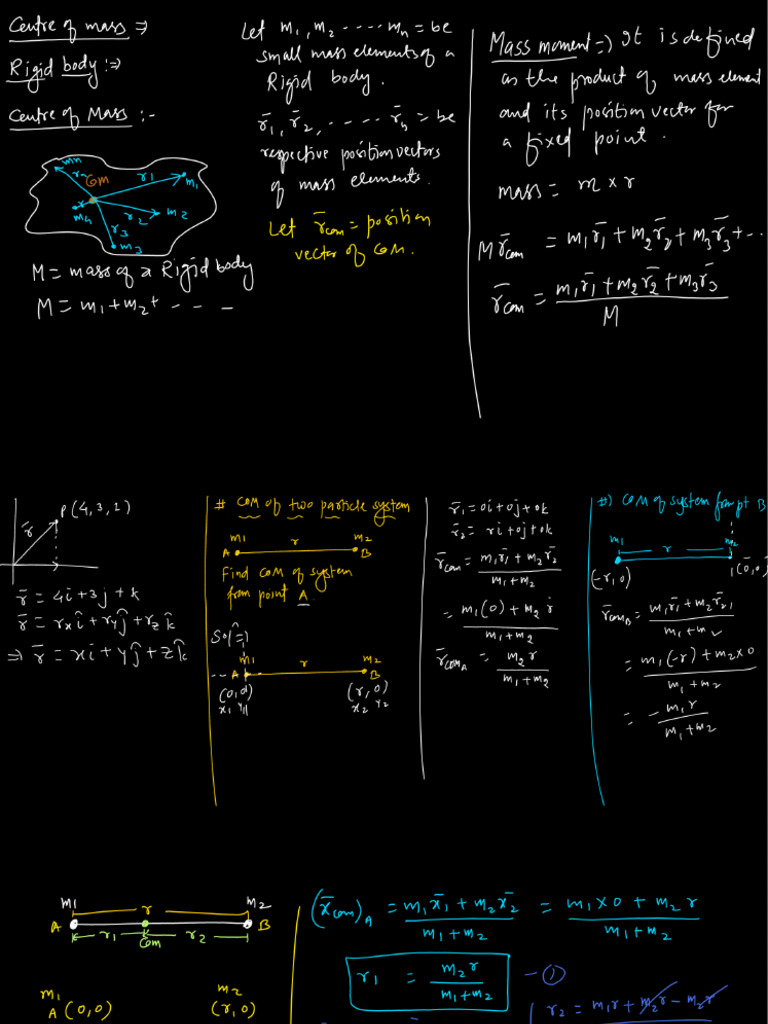 Centre of mass ⇒
Rigid body :⇒
Centre of Mass :-
mn
rn
Com
r1
m1
r
m4
r2
m2
r3
m3
M = mass of a Rigid body
M = m1 + m2 + - - -
Let m1, m2 ---- mn = be
small mass elements of a
Rigid body.
r̄1, r̄2, ---- r̄n = be
respective position vectors
of mass elements.
Let r̄com = position
vector of COM.
Mass moment ⇒ It is defined
as the product of mass element
and its position vector for
a fixed point.
mass = m × r
M r̄com = m1r̄1 + m2r̄2 + m3r̄3 + ...
r̄com = (m1r̄1 + m2r̄2 + m3r̄3) / M
P(4,3,1)
r̄
r̄ = 4i + 3j + k
r̄ = rxî + ryĵ + rzk̂
⇒ r̄ = xî + yĵ + zk̂
# COM of two particle system
m1 r m2
A B
Find COM of system
from point A.
Sol^n ⇒
m1 r m2
A B
(0,0) (r,0)
x1 y1 x2 y2
r̄1 = 0i + 0j + 0k
r̄2 = ri + 0j + 0k
r̄com = (m1r̄1 + m2r̄2) / (m1 + m2)
= (m1(0) + m2 r) / (m1 + m2)
r̄comA = m2r / (m1 + m2)
#) COM of system from pt B
m1 r m2
(-r,0) (0,0)
r̄comB = (m1r̄1 + m2r̄2) / (m1 + m2)
= (m1(-r) + m2×0) / (m1 + m2)
= -m1r / (m1 + m2)
m1 r m2
A B
r1 Com r2
m1 m2
A (0,0) (r,0)
(x̄com)A = (m1x̄1 + m2x̄2) / (m1 + m2) = (m1×0 + m2 r) / (m1 + m2)
r1 = m2r / (m1 + m2) - ①
r2 = m1r + m2r - m2r